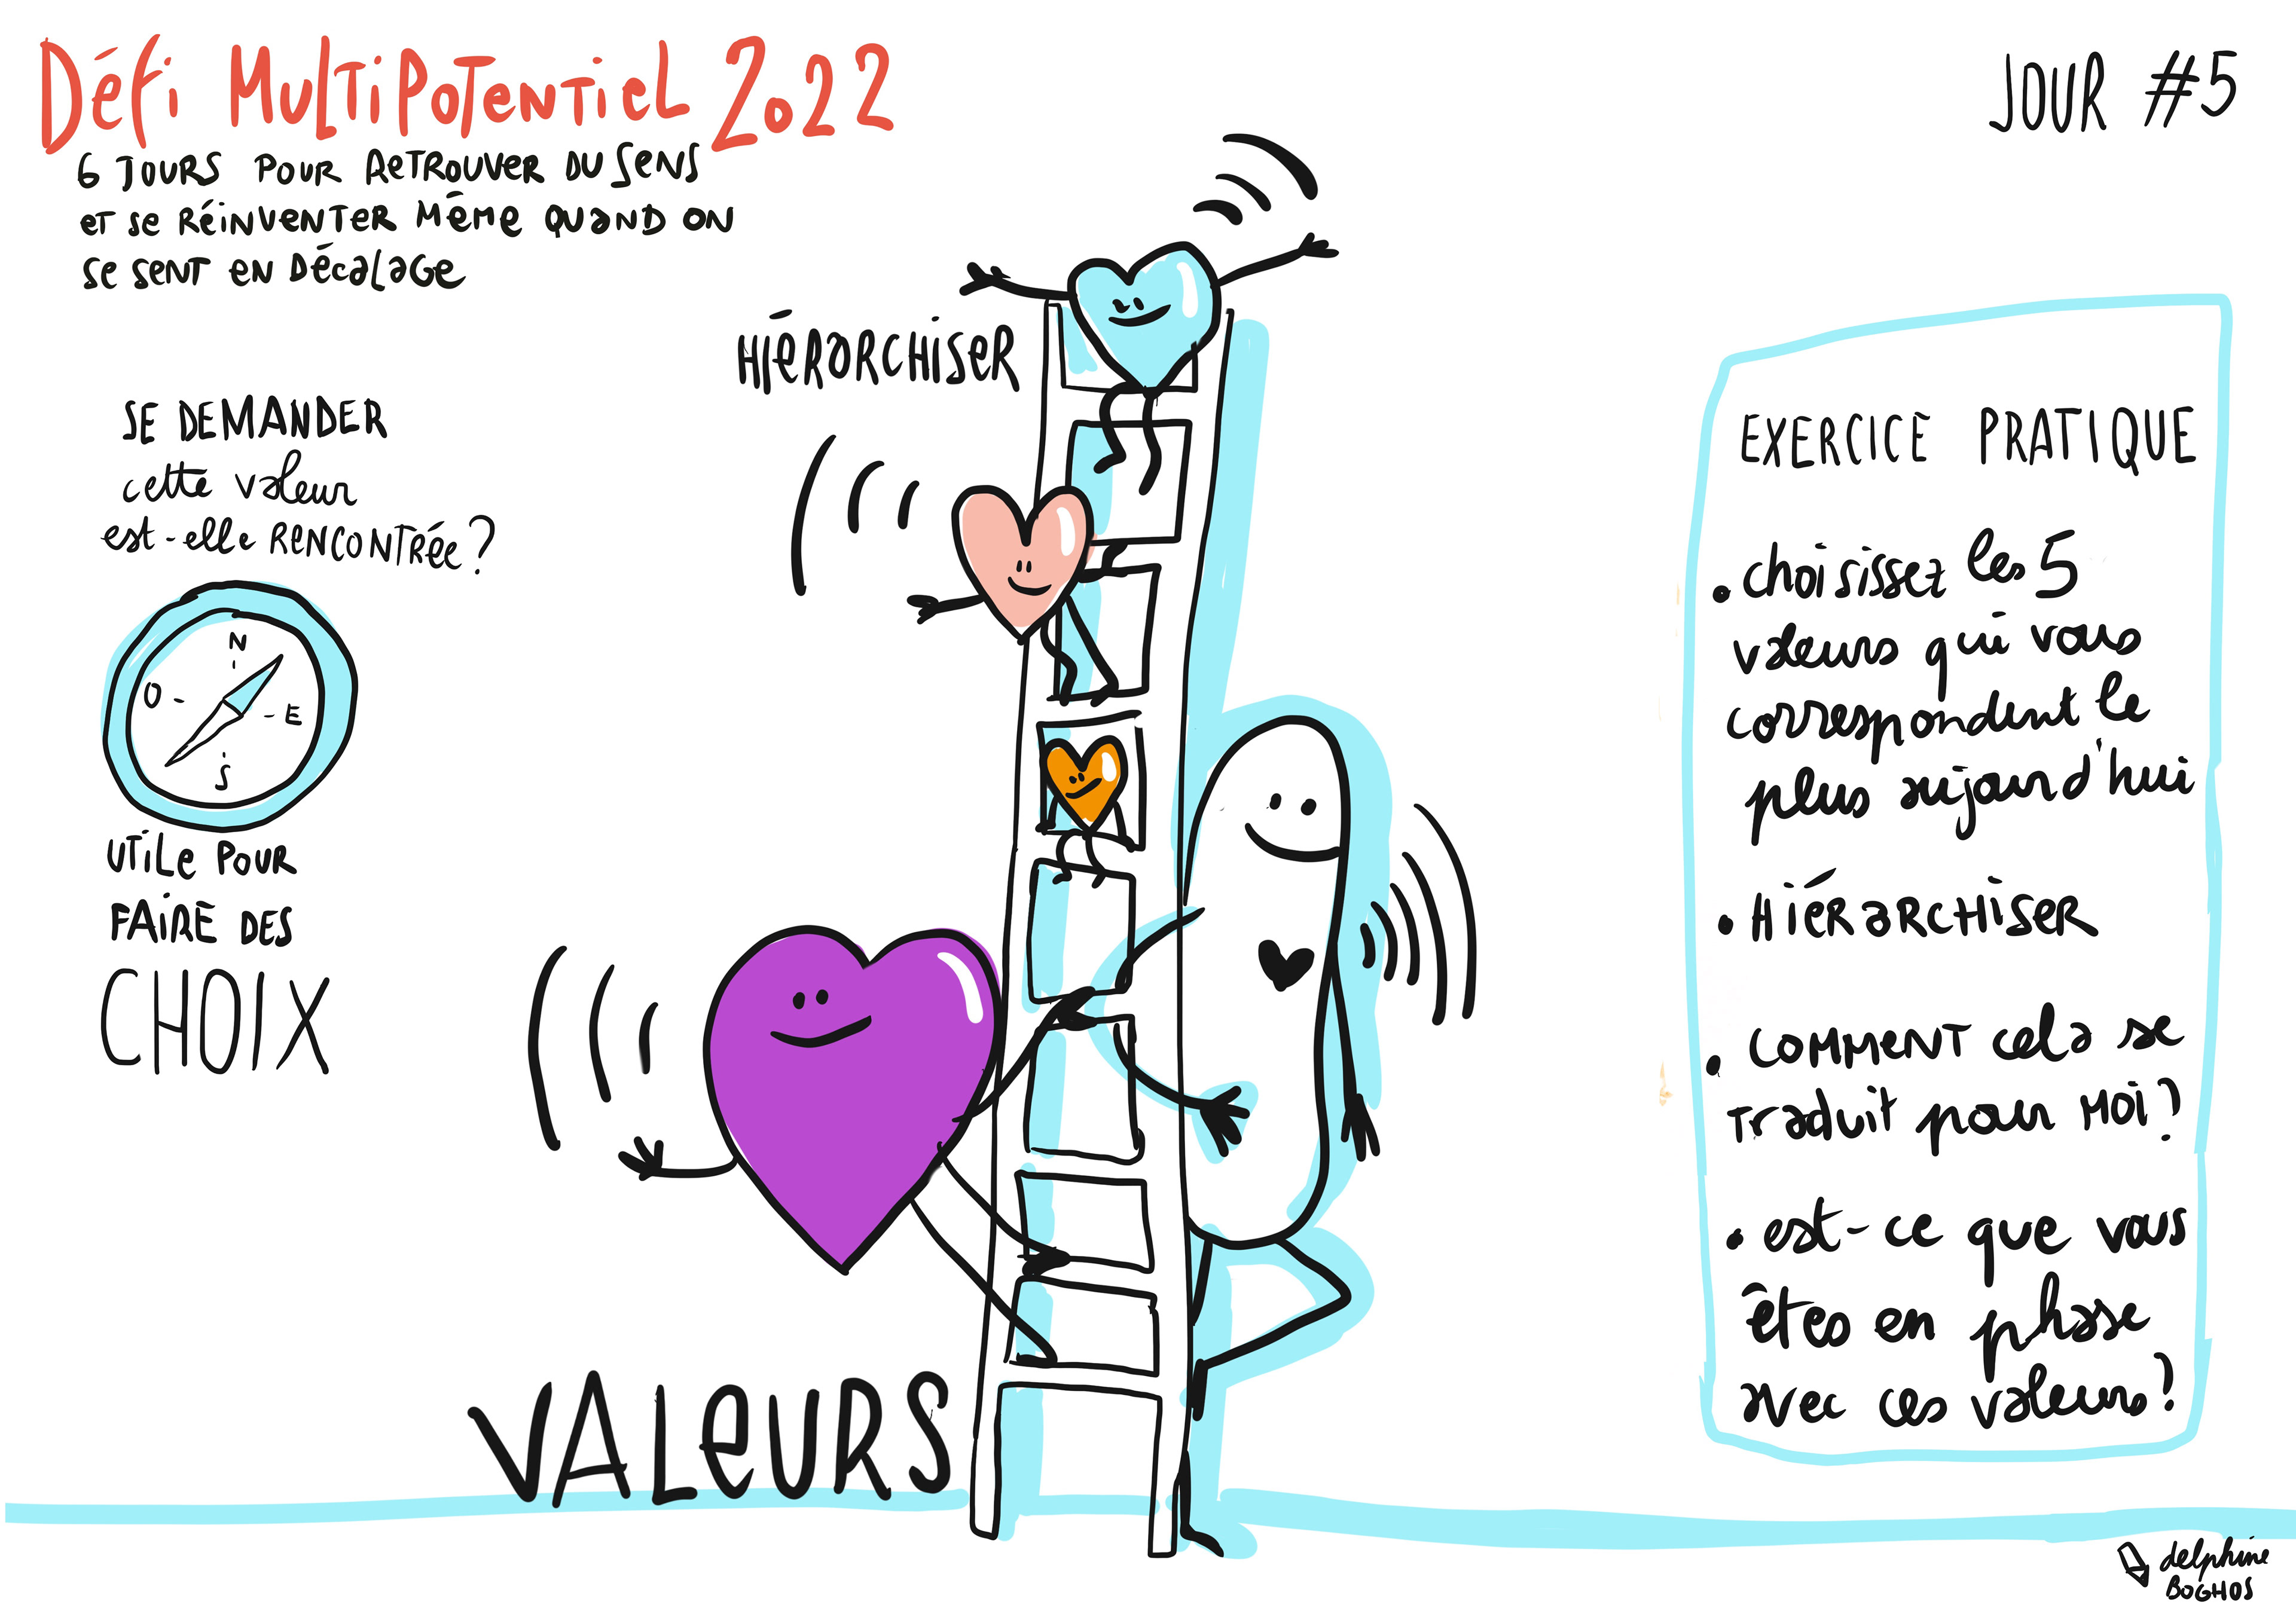 Défi Multipotentiel 2022
6 jours pour retrouver du sens
et se réinventer même quand on
se sent en décalage
JOUR #5
HiéRaRCHiSeR
SE DEMANDER
cette valeur
est-elle RENCONTRée ?
N
O - - E
S
UTiLe POUR
FAIRE DES
CHOIX
VALeURS
EXERCICE PRATIQUE
• choisissez les 5
valeurs qui vous
correspondent le
plus aujourd'hui
• HiéRaRCHiSeR
• COMMENT cela se
traduit pour MOi ?
• est-ce que vous
êtes en phase
avec ces valeurs ?
delphine
BOGHOS